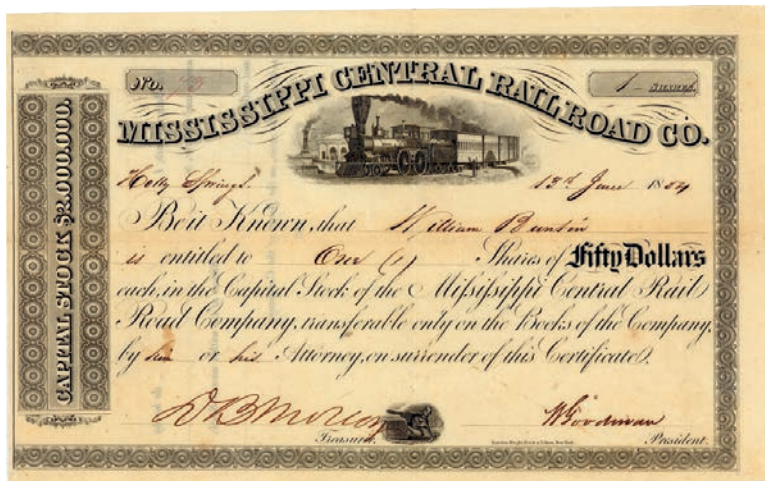 No.
1 SHARES.
MISSISSIPPI CENTRAL RAILROAD CO.
CAPITAL STOCK $2,000,000.
Holly Springs. 13th June 1854
Be it Known, that William Buntin
is entitled to One (1) Shares of Fifty Dollars
each, in the Capital Stock of the Missisippi Central Rail
Road Company, transferable only on the Books of the Company,
by him or his Attorney, on surrender of this Certificate.
W Goodman
Treasurer. President.